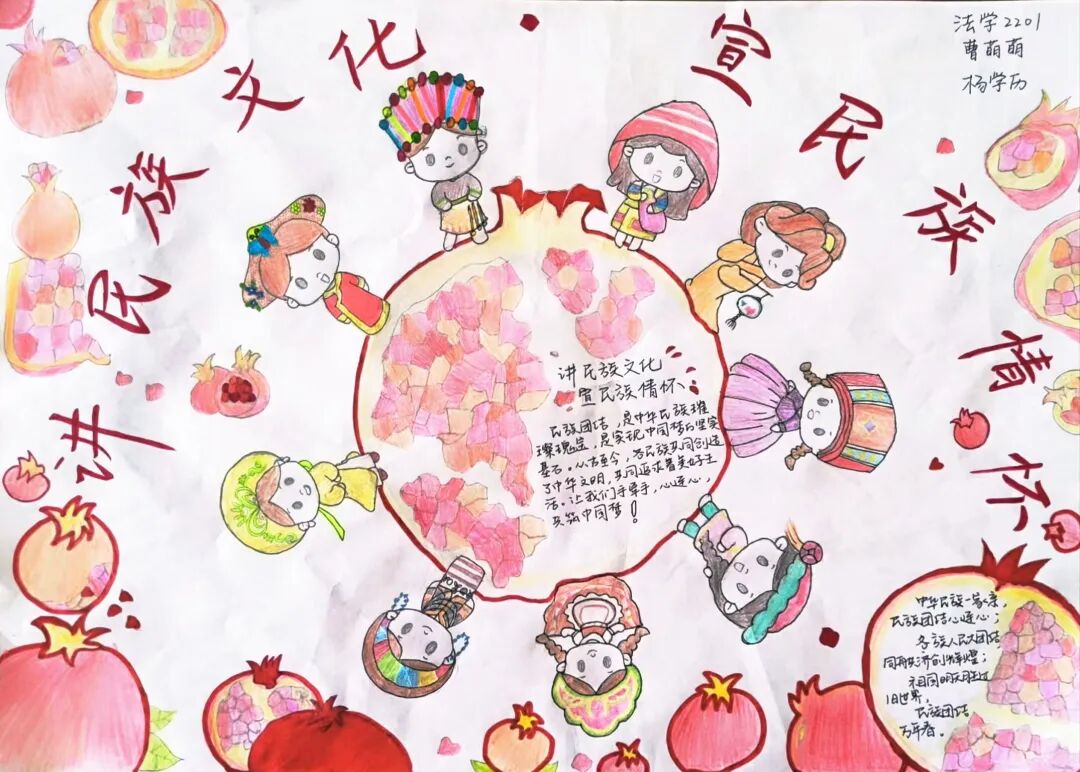 讲民族文化 宣民族情怀
法学2201
曹萌萌
杨学历
讲民族文化
宣民族情怀
民族团结，是中华民族璀
璨瑰宝，是实现中国梦的坚实
基石。从古至今，各民族共同创造
了中华文明，共同追求着美好生
活。让我们手牵手，心连心，
共筑中国梦！
中华民族一家亲，
民族团结心连心；
各族人民大团结
同舟共济创辉煌；
明天胜过
旧世界，
民族团结
万年春。